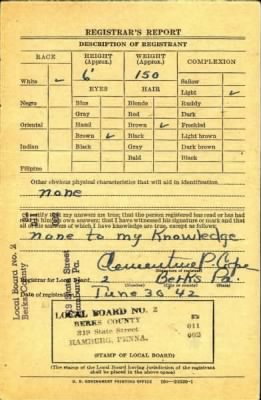 REGISTRAR'S REPORT
DESCRIPTION OF REGISTRANT
RACE HEIGHT (Approx.) WEIGHT (Approx.) COMPLEXION
6' 150
White ✓ Sallow
EYES HAIR Light ✓
Negro Blue Blonde Ruddy
Gray Red Dark
Oriental Hazel Brown ✓ Freckled
Brown ✓ Black Light brown
Indian Black Gray Dark brown
Bald Black
Filipino
Other obvious physical characteristics that will aid in identification
none
I certify that my answers are true; that the person registered has read or has had
read to him his own answers; that I have witnessed his signature or mark and that
all of his answers of which I have knowledge are true, except as follows:
none to my Knowledge
Clementine P. Cope
Registrar for Local Board 2 Berks Pa.
Date of registration June 30 42
Local Board No. 2
Berks County
319 State Street
Hamburg Pa.
LOCAL BOARD NO. 2
BERKS COUNTY
319 State Street
HAMBURG, PENNA.
011
002
(STAMP OF LOCAL BOARD)
(The stamp of the Local Board having jurisdiction of the registrant
shall be placed in the above space)
U. S. GOVERNMENT PRINTING OFFICE